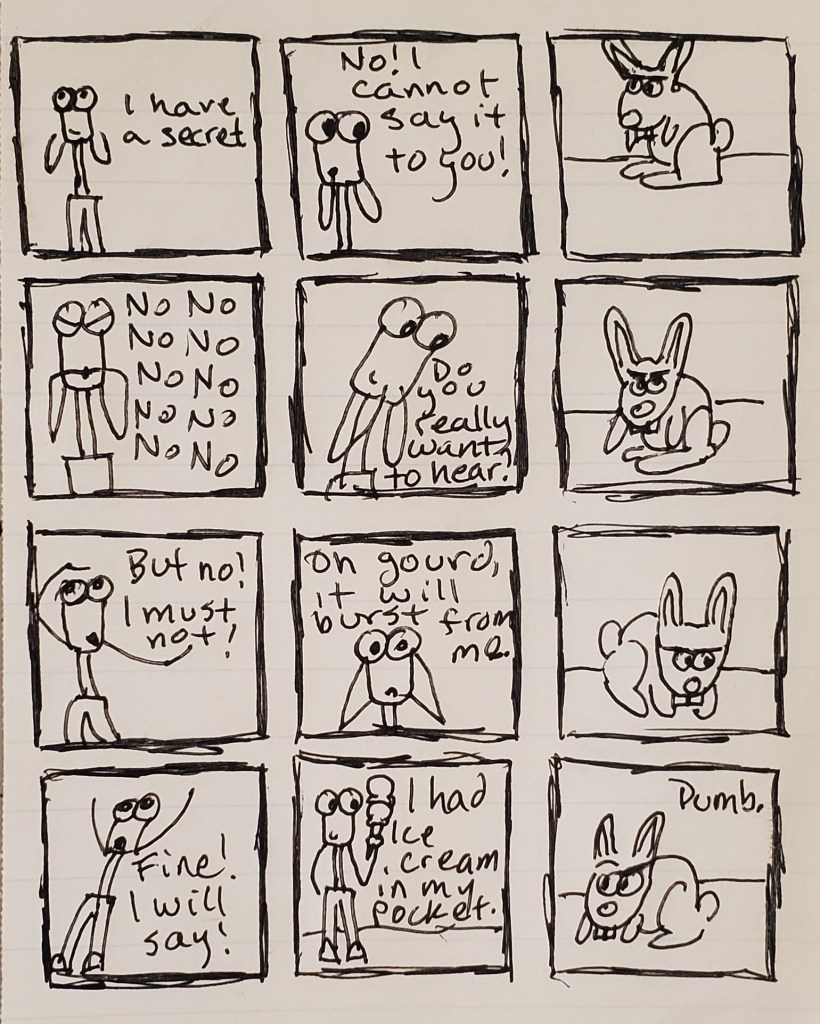 I have
a secret
No! I
cannot
say it
to you!
No No
No No
No No
No No
No No
Do
you
really
want
to hear?
But no!
I must
not!
Oh gourd,
it will
burst from
me.
Fine!
I will
say!
I had
Ice
cream
in my
pocket.
Dumb.